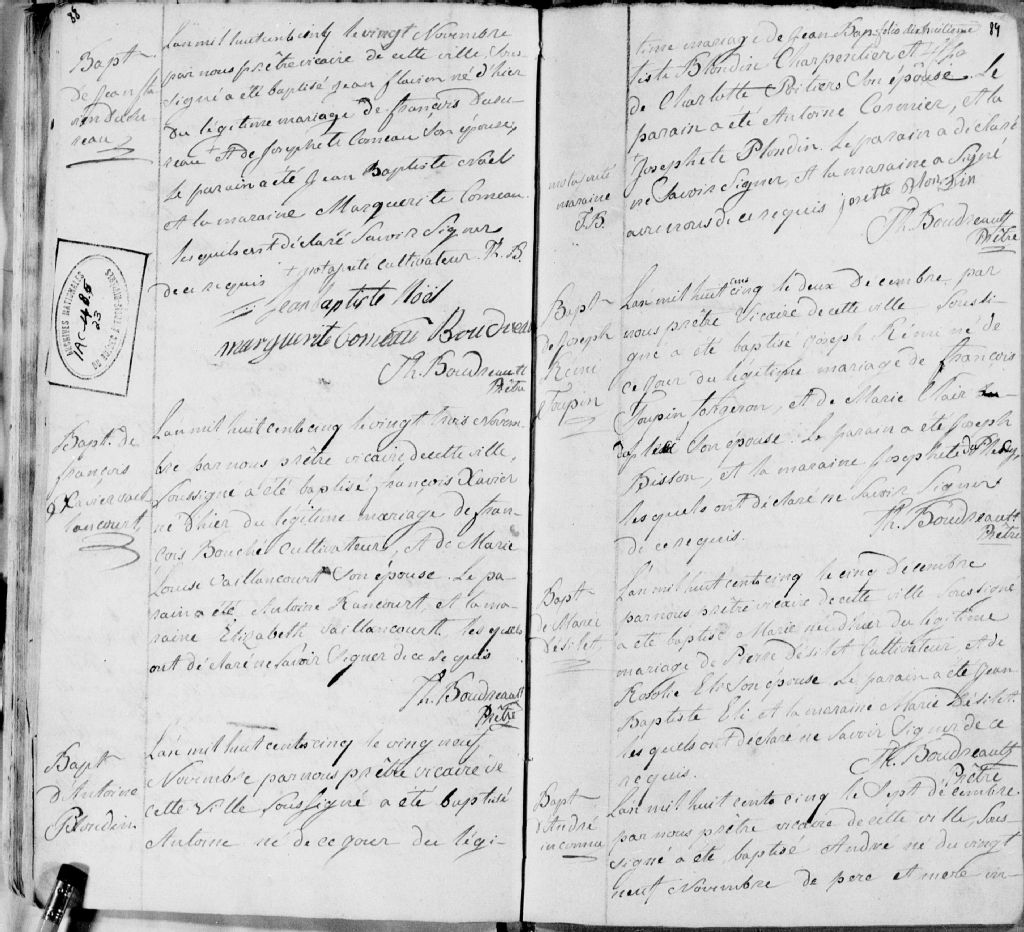 88
Bapt
de Jean fla
vien Dusu
reau
L'an mil huit cent cinq le vingt Novembre
par nous prêtre vicaire de cette ville Sous
signé a été baptisé Jean flavien né d'hier
du légitime mariage de françois Dusu
reau + Et de Josephte Comeau Son épouse,
Le parain a été Jean Baptiste Noël
Et la maraine Marguerite Comeau.
lesquels ont déclaré Savoir Signer
de ce requis + cultivateur. Th. B.
Jean baptiste Noël
marguerite Comeau Boudreau
Th. Boudreault
Prêtre
ARCHIVES NATIONALES
1AC-485
23
Bapt. de
françois
Xavier vail
lancourt
L'an mil huit cents cinq le vingt trois Novem
bre par nous prêtre vicaire de cette ville,
Soussigné a été baptisé françois Xavier
né d'hier du légitime mariage de fran
çois Bouché Cultivateur, Et de Marie
Louise Vaillancourt Son épouse. Le pa-
rain a été Antoine Rancourt, et la ma-
raine Elizabeth Vaillancourt. lesquels
ont déclaré ne Savoir Signer de ce requis
Th. Boudreault
Prêtre
Bapt
d'Antoine
Plondin.
L'an mil huit cents cinq le vingt neuf
Novembre par nous prêtre vicaire de
cette ville Soussigné a été baptisé
Antoine né de ce jour du légi-
folio dix huitieme
89
time mariage de Jean Bap-
tiste Blondin Charpentier Et
de Charlotte Poitiers Son épouse. Le
parain a été Antoine Cormier, Et la
Josephete Plondin. Le parain a déclaré
ne Savoir Signer, Et la maraine a Signé
avec nous de ce requis josette Plondin
Th. Boudreault
Prêtre
maraine
T.B.
Bapt
de Joseph
Rémi
Toupin
L'an mil huit cens cinq le deux Décembre par
nous prêtre Vicaire de cette ville Soussi-
gné a été baptisé Joseph Rémi né de
ce jour du légitime mariage de françois
Toupin forgeron, et de Marie Clair
duplessi Son épouse. Le parain a été Joseph
Bisson, Et la maraine Josephete du Plessy,
lesquels ont déclaré ne Savoir Signer
de ce requis.
Th. Boudreault
Prêtre
Bapt
de Marie
Désilet,
L'an mil huit cents cinq le cinq décembre
par nous prêtre vicaire de cette ville Soussigné
a été baptisé Marie née d'hier du légitime
mariage de Pierre Désilet Cultivateur, et de
Rosalie Eli Son épouse. Le parain a été Jean
Baptiste Eli et la maraine Marie Désilet.
lesquels ont déclaré ne Savoir Signer de ce
requis.
Th. Boudreault
Prêtre
Bapt
d'André
inconnu
L'an mil huit cents cinq le Sept décembre
par nous prêtre vicaire de cette ville, Sous-
signé a été baptisé André né du vingt
neuf Novembre de pere et mere in-